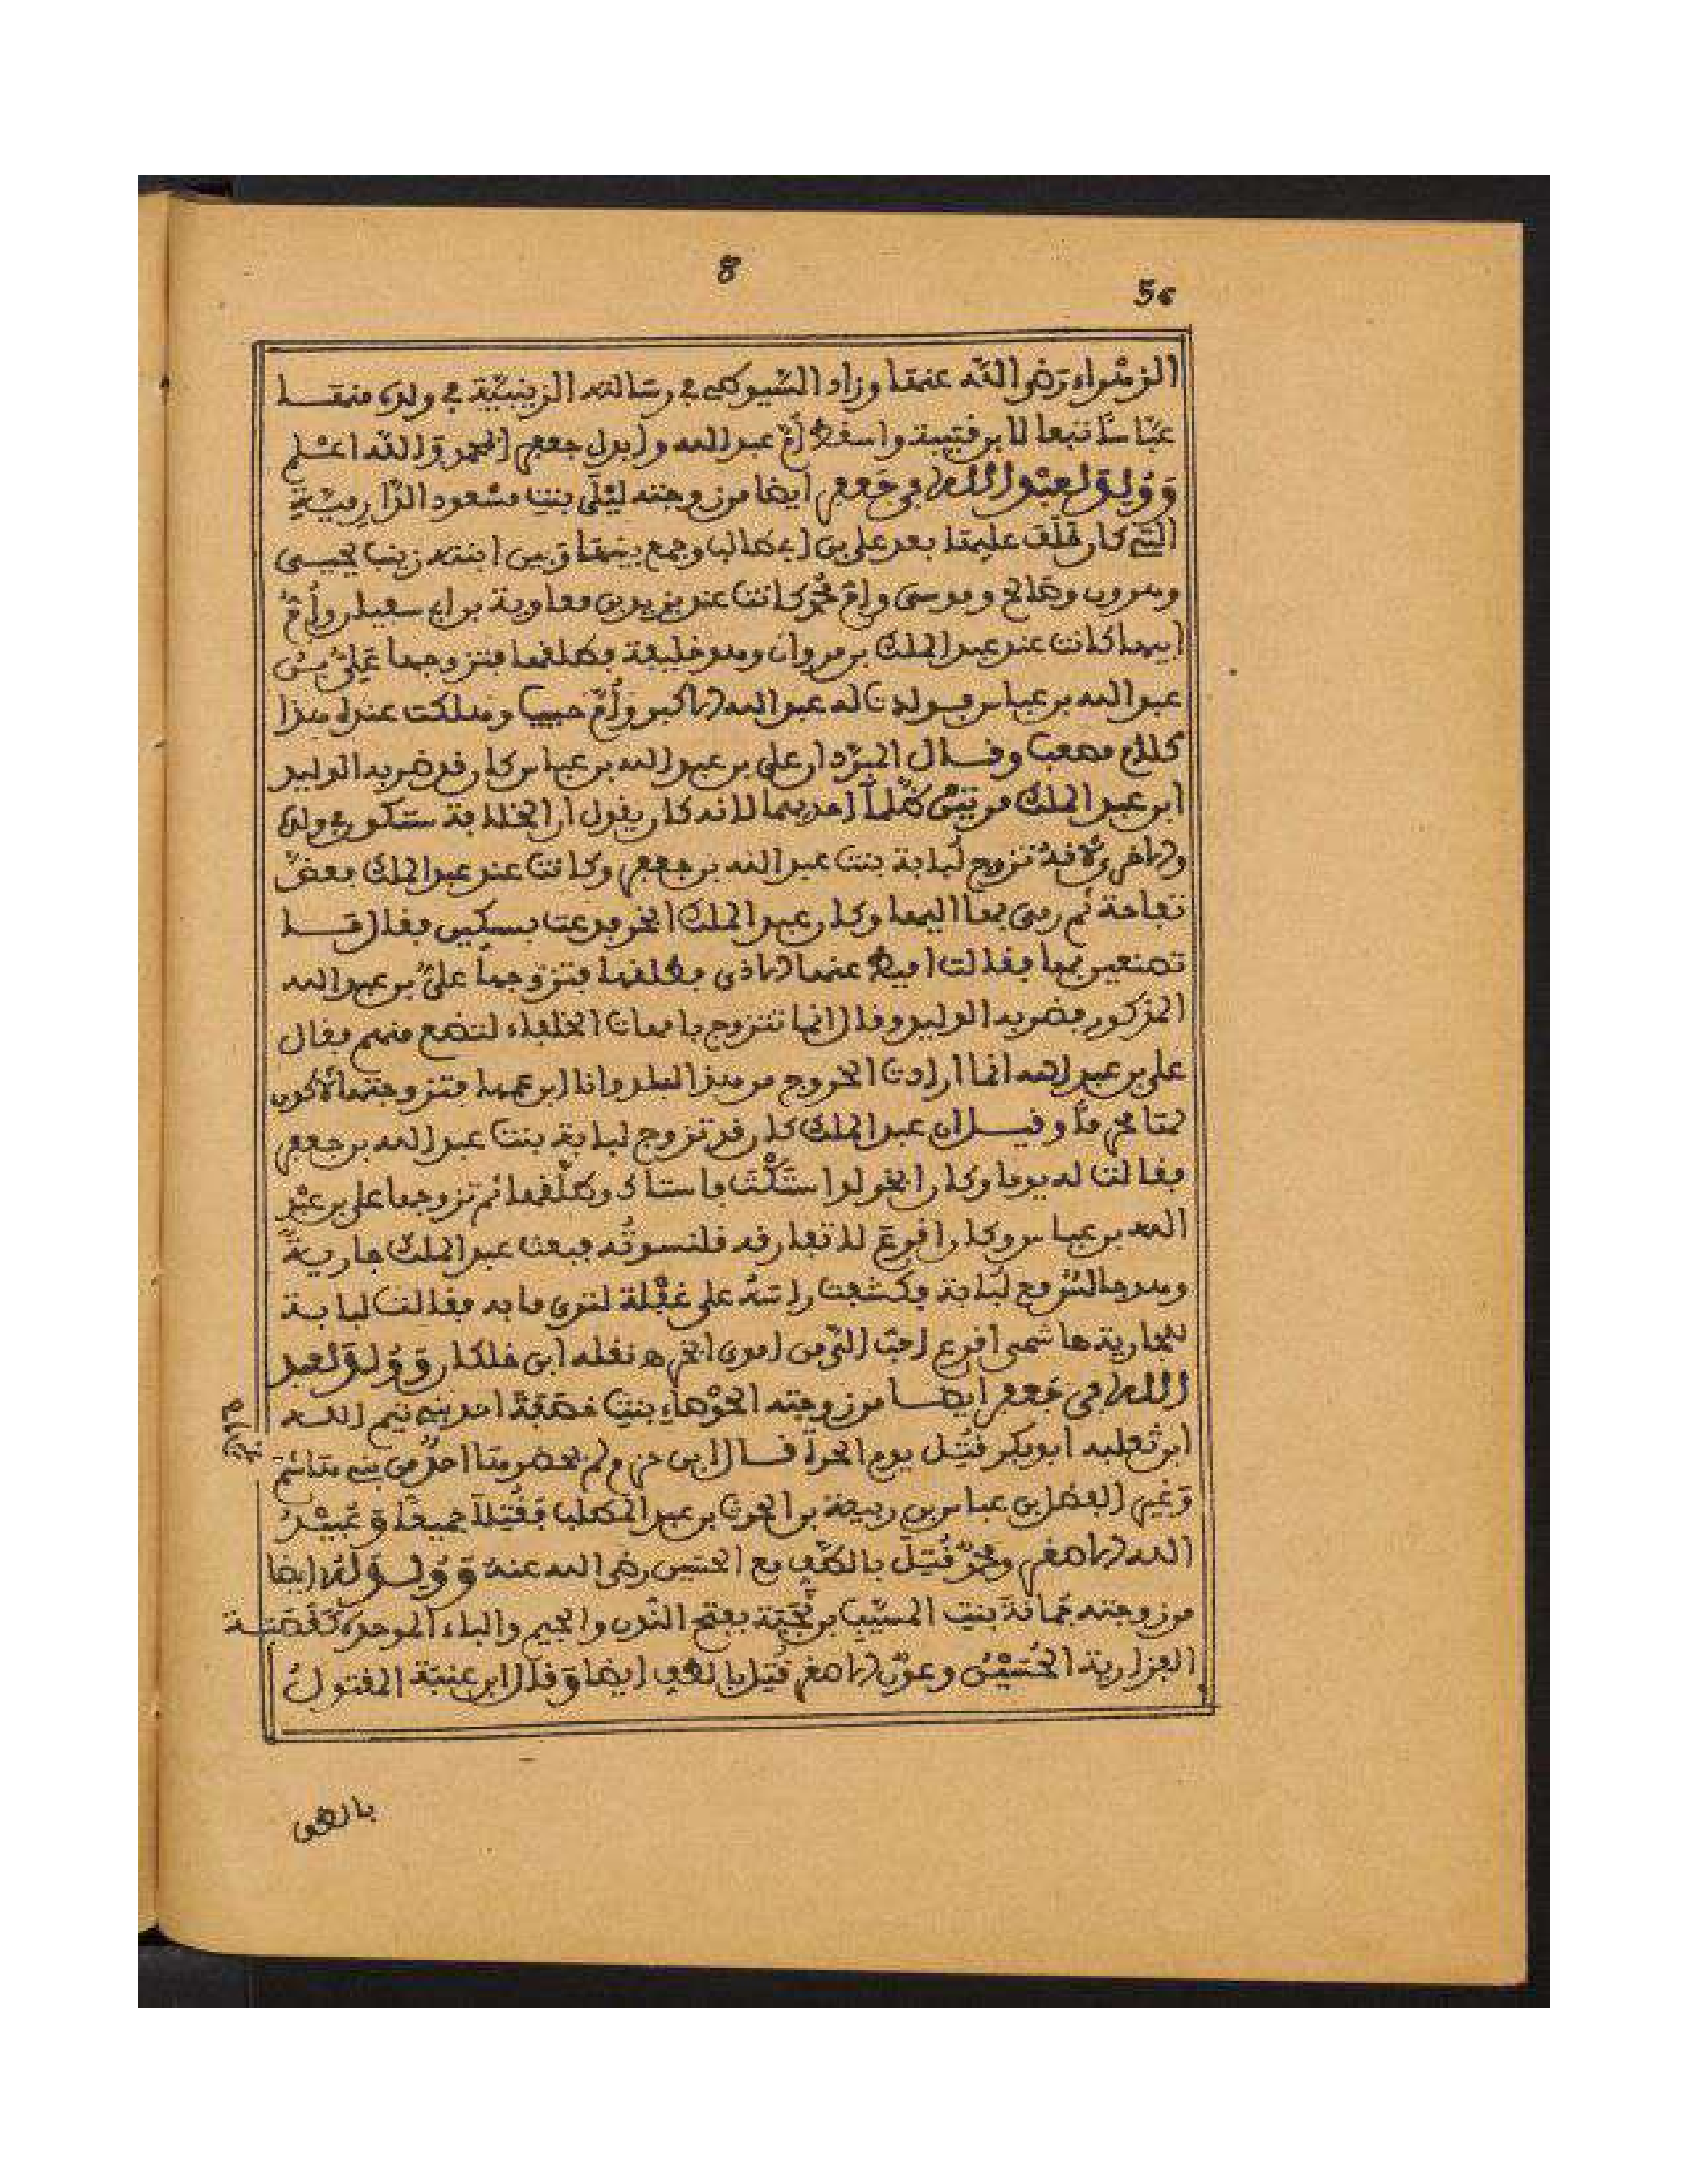 8
5
الزهراء رضي الله عنها وزاد السيوطي في رسالته الزينبية في ولده منها
عباسا تبعا لابن قتيبة واسقط ام عبد الله وابدل جعفر بمحمد والله اعلم
وولد لعبد الله بن جعفر ايضا من زوجته ليلى بنت مسعود الدارمية
التي كان خلف عليها بعد علي بن ابي طالب وجمع بينها وبين ابنته زينب يحيى
وهرون وصالح وموسى وام محمد كانت عند يزيد بن معاوية بن ابي سفيان وام
ابيها كانت عند عبد الملك بن مروان وهو خليفة فطلقها فتزوجها علي بن
عبد الله بن عباس فولدت له عبد الله الاكبر وام حبيب وهلكت عنده هذا
كلام مصعب وقال المبرد ان علي بن عبد الله بن عباس كان قد ضربه الوليد
ابن عبد الملك مرتين ظلما احديهما لانه كان يقول ان الخلافة ستكون في ولدي
والاخرى لانه تزوج لبابة بنت عبد الله بن جعفر وكانت عند عبد الملك بعض
تفاحة ثم رمى بها اليها وكان عبد الملك ابخر فدعت بسكين فقال ما
تصنعين بها فقالت اميط عنها الاذى فطلقها فتزوجها علي بن عبد الله
المذكور فضربه الوليد وقال انما تتزوج بامهات الخلفاء لتضع منهم فقال
علي بن عبد الله انما ارادت الخروج من هذا البلد وانا ابن عمها فتزوجتها لاكون
لها محرما وقيل ان عبد الملك كان قد تزوج لبابة بنت عبد الله بن جعفر
فقالت له يوما وكان ابخر لو استكت فاستاك وطلقها ثم تزوجها علي بن عبد
الله بن عباس وكان اقرع لا تفارقه قلنسوته فبعث عبد الملك جارية
وهو جالس مع لبابة فكشفت راسه على غفلة لترى ما به فقالت لبابة
للجارية هاشمي اقرع احب الي من اموي ابخر ه نقله ابن خلكان وولد لعبد
الله بن جعفر ايضا من زوجته الخوصاء بنت خصفة احد بني تيم الله
ابن ثعلبه ابو بكر قتل يوم الحرة قال ابن حزم لم يحضرها احد من بني هاشم
وغير الفضل بن عباس بن ربيعة بن الحرث بن عبد المطلب فقتلا جميعا وعبيد
الله الاصغر ومحمد قتل بالطف مع الحسين رضي الله عنه وولد له ايضا
من زوجته جمانة بنت المسيب بن نجبة بفتح النون والجيم والباء الموحدة كقصبة
الفزارية الحسين وعون الاصغر قتل بالطف ايضا وقال ابن عنبة المقتول
بالطف